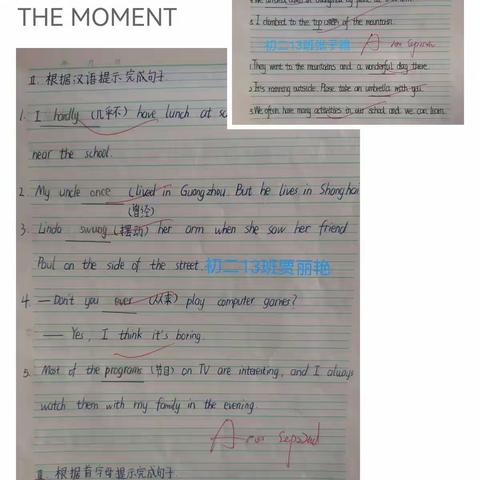 THE MOMENT
5. I climbed to the top of the mountain.
初二13班张子艳
1. They went to the mountains and a wonderful day there.
2. It's raining outside. Please take an umbrella with you.
3. We often have many activities in our school and we can learn
II. 根据汉语提示完成句子
1. I hardly (几乎不) have lunch at
near the school.
2. My uncle once (lived in Guangzhou. But he lives in Shanghai
(曾经)
3. Linda swung (摆动) her arm when she saw her friend
Paul on the side of the street.
初二13班贾丽艳
4. — Don't you ever (从来) play computer games?
— Yes, I think it's boring.
5. Most of the programs (节目) on TV are interesting, and I always
watch them with my family in the evening.
A
II. 根据首字母提示完成句子